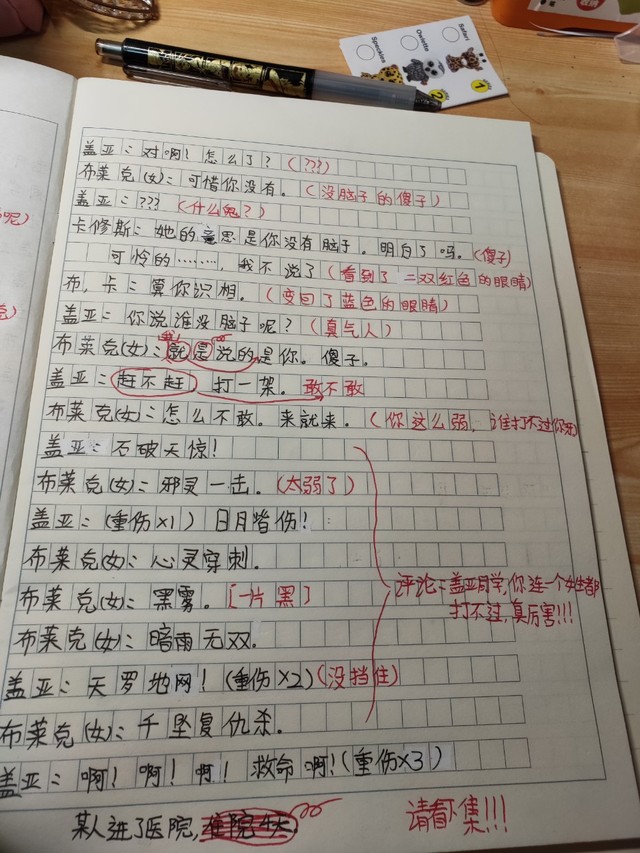 Speckles
Owlette
Safari
2
1
盖亚:对啊!怎么了?(???)
布莱克(女):可惜你没有。(没脑子的傻子)
盖亚:???(什么鬼?)
卡修斯:她的意思是你没有脑子。明白了吗。(傻子)
可怜的……,我不说了(看到了二双红色的眼睛)
布,卡:算你识相。(变回了蓝色的眼睛)
盖亚:你说谁没脑子呢?(真气人)
布莱克(女):就是说的是你。傻子。
盖亚:赶不赶,打一架。敢不敢
布莱克(女):怎么不敢。来就来。(你这么弱,谁打不过你呀)
盖亚:石破天惊!
布莱克(女):邪灵一击。(太弱了)
盖亚:(重伤×1)日月皆伤!
布莱克(女):心灵穿刺。
布莱克(女):黑雾。[一片黑]
评论:盖亚同学,你连一个女生都
打不过,真厉害!!!
布莱克(女):暗雨无双。
盖亚:天罗地网!(重伤×2)(没挡住)
布莱克(女):千坚复仇杀。
盖亚:啊!啊!啊!救命啊!(重伤×3)
某人进了医院,住院4天
请看下集!!!